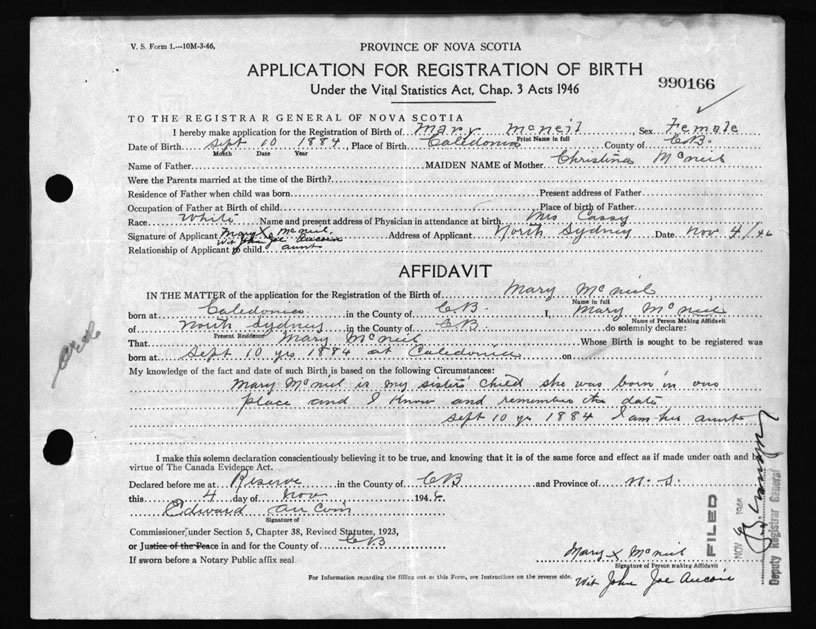 V. S. Form 1.—10M-3-46.
PROVINCE OF NOVA SCOTIA
APPLICATION FOR REGISTRATION OF BIRTH
990166
Under the Vital Statistics Act, Chap. 3 Acts 1946
TO THE REGISTRAR GENERAL OF NOVA SCOTIA
I hereby make application for the Registration of Birth of Mary McNeil Sex Female
Print Name in full
Date of Birth Sept 10 1884, Place of Birth Caledonia County of C.B.
Month Date Year
Name of Father MAIDEN NAME of Mother Christina McNeil
Were the Parents married at the time of the Birth?
Residence of Father when child was born Present address of Father
Occupation of Father at Birth of child Place of birth of Father
Race White Name and present address of Physician in attendance at birth Mrs Cassy
Signature of Applicant Mary X McNeil Address of Applicant North Sydney Date Nov 4/46
Wit John Joe Aucoin
Relationship of Applicant to child aunt
AFFIDAVIT
IN THE MATTER of the application for the Registration of the Birth of Mary McNeil
Name in full
born at Caledonia in the County of C.B. I, Mary McNeil
Name of Person Making Affidavit
of North Sydney in the County of C.B. do solemnly declare:
Present Residence
That Mary McNeil Whose Birth is sought to be registered was
born at Sept 10 yrs 1884 at Caledonia on
My knowledge of the fact and date of such Birth is based on the following Circumstances:
Mary McNeil is my sisters child she was born in our
place and I know and remember the date
Sept 10 yr 1884 I am her aunt
I make this solemn declaration conscientiously believing it to be true, and knowing that it is of the same force and effect as if made under oath and by
virtue of The Canada Evidence Act.
Declared before me at Reserve in the County of CB and Province of N.S.
this 4 day of Nov 1946
Edward AuCoin
Signature of
Commissioner under Section 5, Chapter 38, Revised Statutes, 1923,
or Justice of the Peace in and for the County of CB
If sworn before a Notary Public affix seal
Mary X McNeil
Signature of Person making Affidavit
Wit John Joe Aucoin
For Information regarding the filling out of this Form, see Instructions on the reverse side.
FILED
NOV 6 1946
Deputy Registrar General